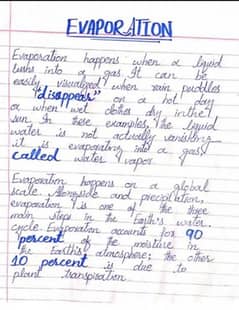 EVAPORATION
Evaporation happens when a liquid
turns into a gas. It can be
easily visualized when rain puddles
"disappear" on a hot day
or when wet clothes dry in the
sun. In these examples, the liquid
water is not actually vanishing
it is evaporating into a gas
called water vapor.
Evaporation happens on a global
scale. Alongside and precipitation,
evaporation is one of the three
main steps in the Earth's water
cycle. Evaporation accounts for 90
percent of the moisture in
the Earth's atmosphere; the other
10 percent is due to
plant transpiration